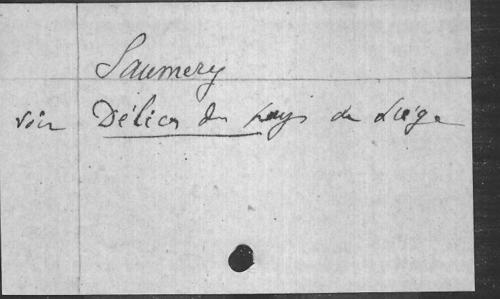 Saumery
voir Délices du pays de Liége